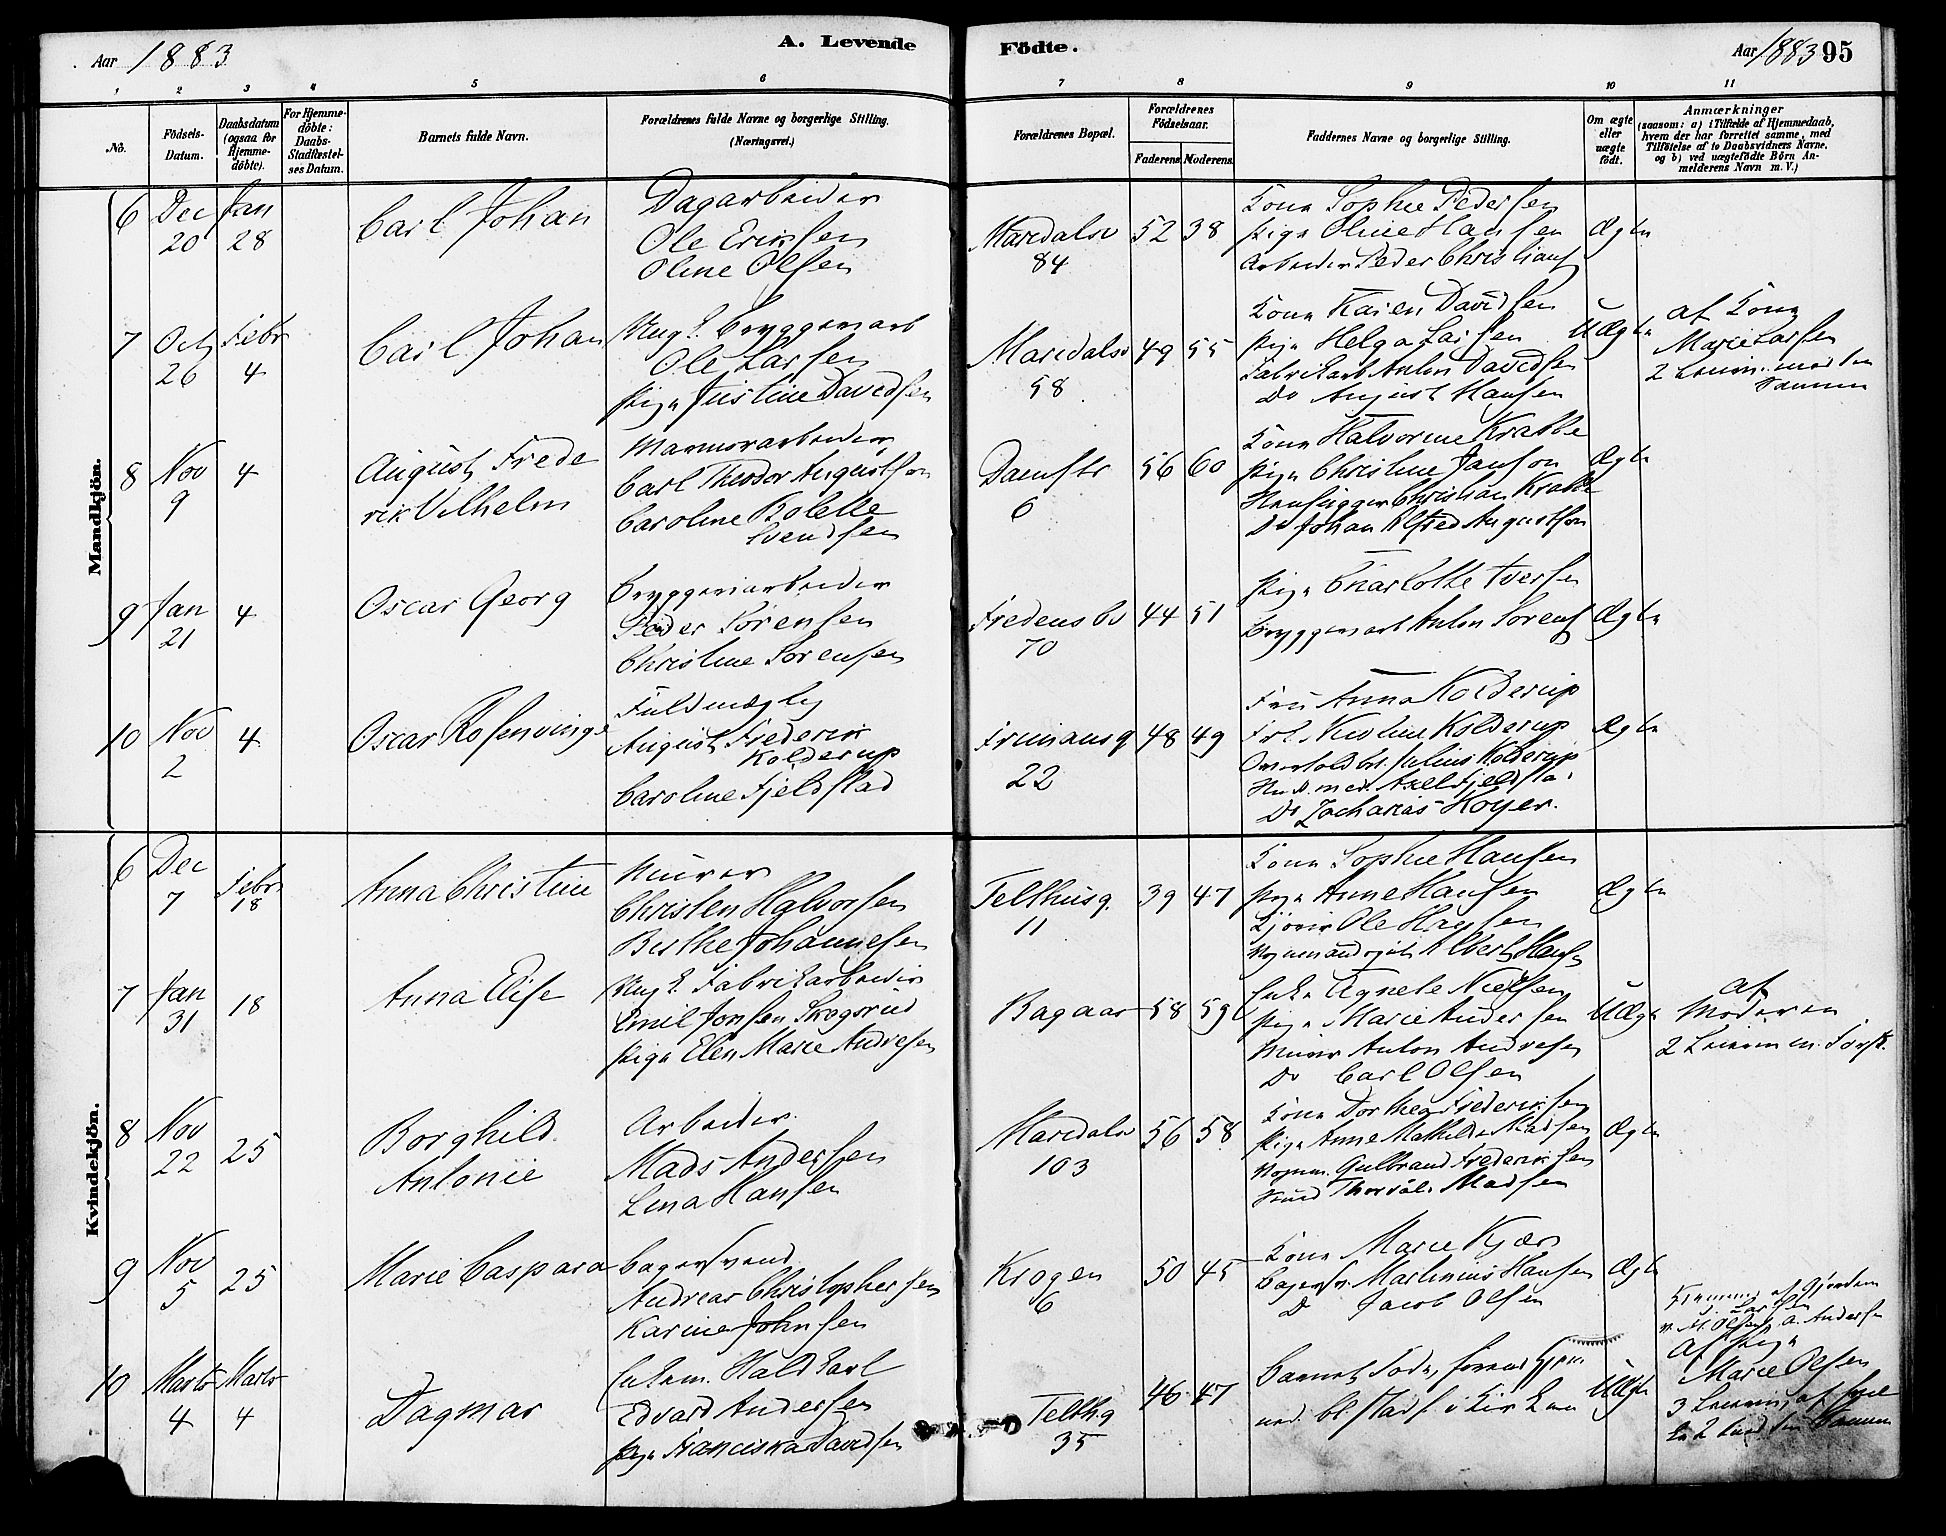 Aar 1883
A. Levende
Födte.
Aar 1883 95
1 2 3 4 5 6 7 8 9 10 11
No.
Födsels-Datum.
Daabsdatum (ogsaa for Hjemme-döbte).
For Hjemme-döbte: Daabs-Stadfæstel-ses Datum.
Barnets fulde Navn.
Forældrenes fulde Navne og borgerlige Stilling. (Næringsvei.)
Forældrenes Bopæl.
Forældrenes Födselsaar.
Faderens Moderens
Faddernes Navne og borgerlige Stilling.
Om ægte eller uægte födt.
Anmærkninger
(saasom: a) i Tilfælde af Hjemmedaab,
hvem der har forrettet samme, med
Tilföielse af to Daabsvidners Navne.
og b) ved uægtefödte Börn An-
melderens Navn m. V.)
Mandkjön.
6 Dec 20 Jan 28
Carl Johan
Dagarbeider
Ole Eriksen
Oline Olsen
Maridalsv 84
52 38
Kone Sophie Pedersen
Pige Oline Hansen
Arbeider Peder Christians
Ægte
7 Oct 26 Febr 4
Carl Johan
Ung. Bryggeriarb
Ole Larsen
Pige Justine Davidsen
Maridalsv 58
49 55
Kone Karen Davidsen
Pige Helga Larsen
Fabrikarb Anton Davidsen
Do August Hansen
Uægte
af Kone
Marie Larsen
8 Nov 9 4
August Frede
rik Vilhelm
Marmorarbeider
Carl Theodor Augustson
Caroline Bolette
Svendsen
Damstr 6
56 60
Kone Halvorine Krabbe
Pige Christine Janson
Stenhugger Christian Krabbe
Do Johan Alfred Augustson
Ægte
9 Jan 21 4
Oscar Georg
Bryggeriarbeider
Peder Sörensen
Christine Sörensen
Fredensbo 70
44 51
Pige Charlotte Iversen
Bryggeriarb Anton Sörens
Ægte
10 Nov 2 4
Oscar Rosenvinge
Fuldmægtig
August Frederik
Kolderup
Caroline Fjeldstad
Frimansg 22
48 49
Fru Anna Kolderup
Frk. Nicoline Kolderup
Julius Kolderup
Stud. med. Axel Fjeldsta
Do Zacharias Hoyer.
Ægte
Kvindekjön.
6 Dec 7 Febr 18
Anna Christine
Murer
Christen Halvorsen
Berthe Johannesen
Telthusg. 11
39 47
Kone Sophie Hansen
Pige Anne Hansen
Ole Hansen
Albert Hans
Ægte
7 Jan 31 18
Anna Elise
Ung. Fabrikarbeider
Emil Jonsen Skogsrud
Pige Elen Marie Andresen
Bagaas
58 59
Enke Agnete Nielsen
Pige Marie Andersen
Murer Anton Andresen
Do Carl Olsen
Uægte
af
Moderen
8 Nov 22 25
Borghild
Antonie
Arbeider
Mads Andersen
Lena Hansen
Maridalsv 103
56 58
Kone Dorthea Frederiksen
Pige Anne Mathilde Madsen
Vognm. Gulbrand Frederiksen
Thorvald Madsen
Ægte
9 Nov 5 25
Marie Caspara
Bagersvend
Andreas Christophersen
Karine Johnsen
Krogen 6
50 45
Kone Marie Kjær
Bagersv. Martinius Hansen
D Jacob Olsen
Ægte
10 Marts 4 Marts 4
Dagmar
Enkem.
Edvard Andersen
Pige Franciska Davidsen
Telthg 35
46 47
Uægte
af Pige
Marie Olsen